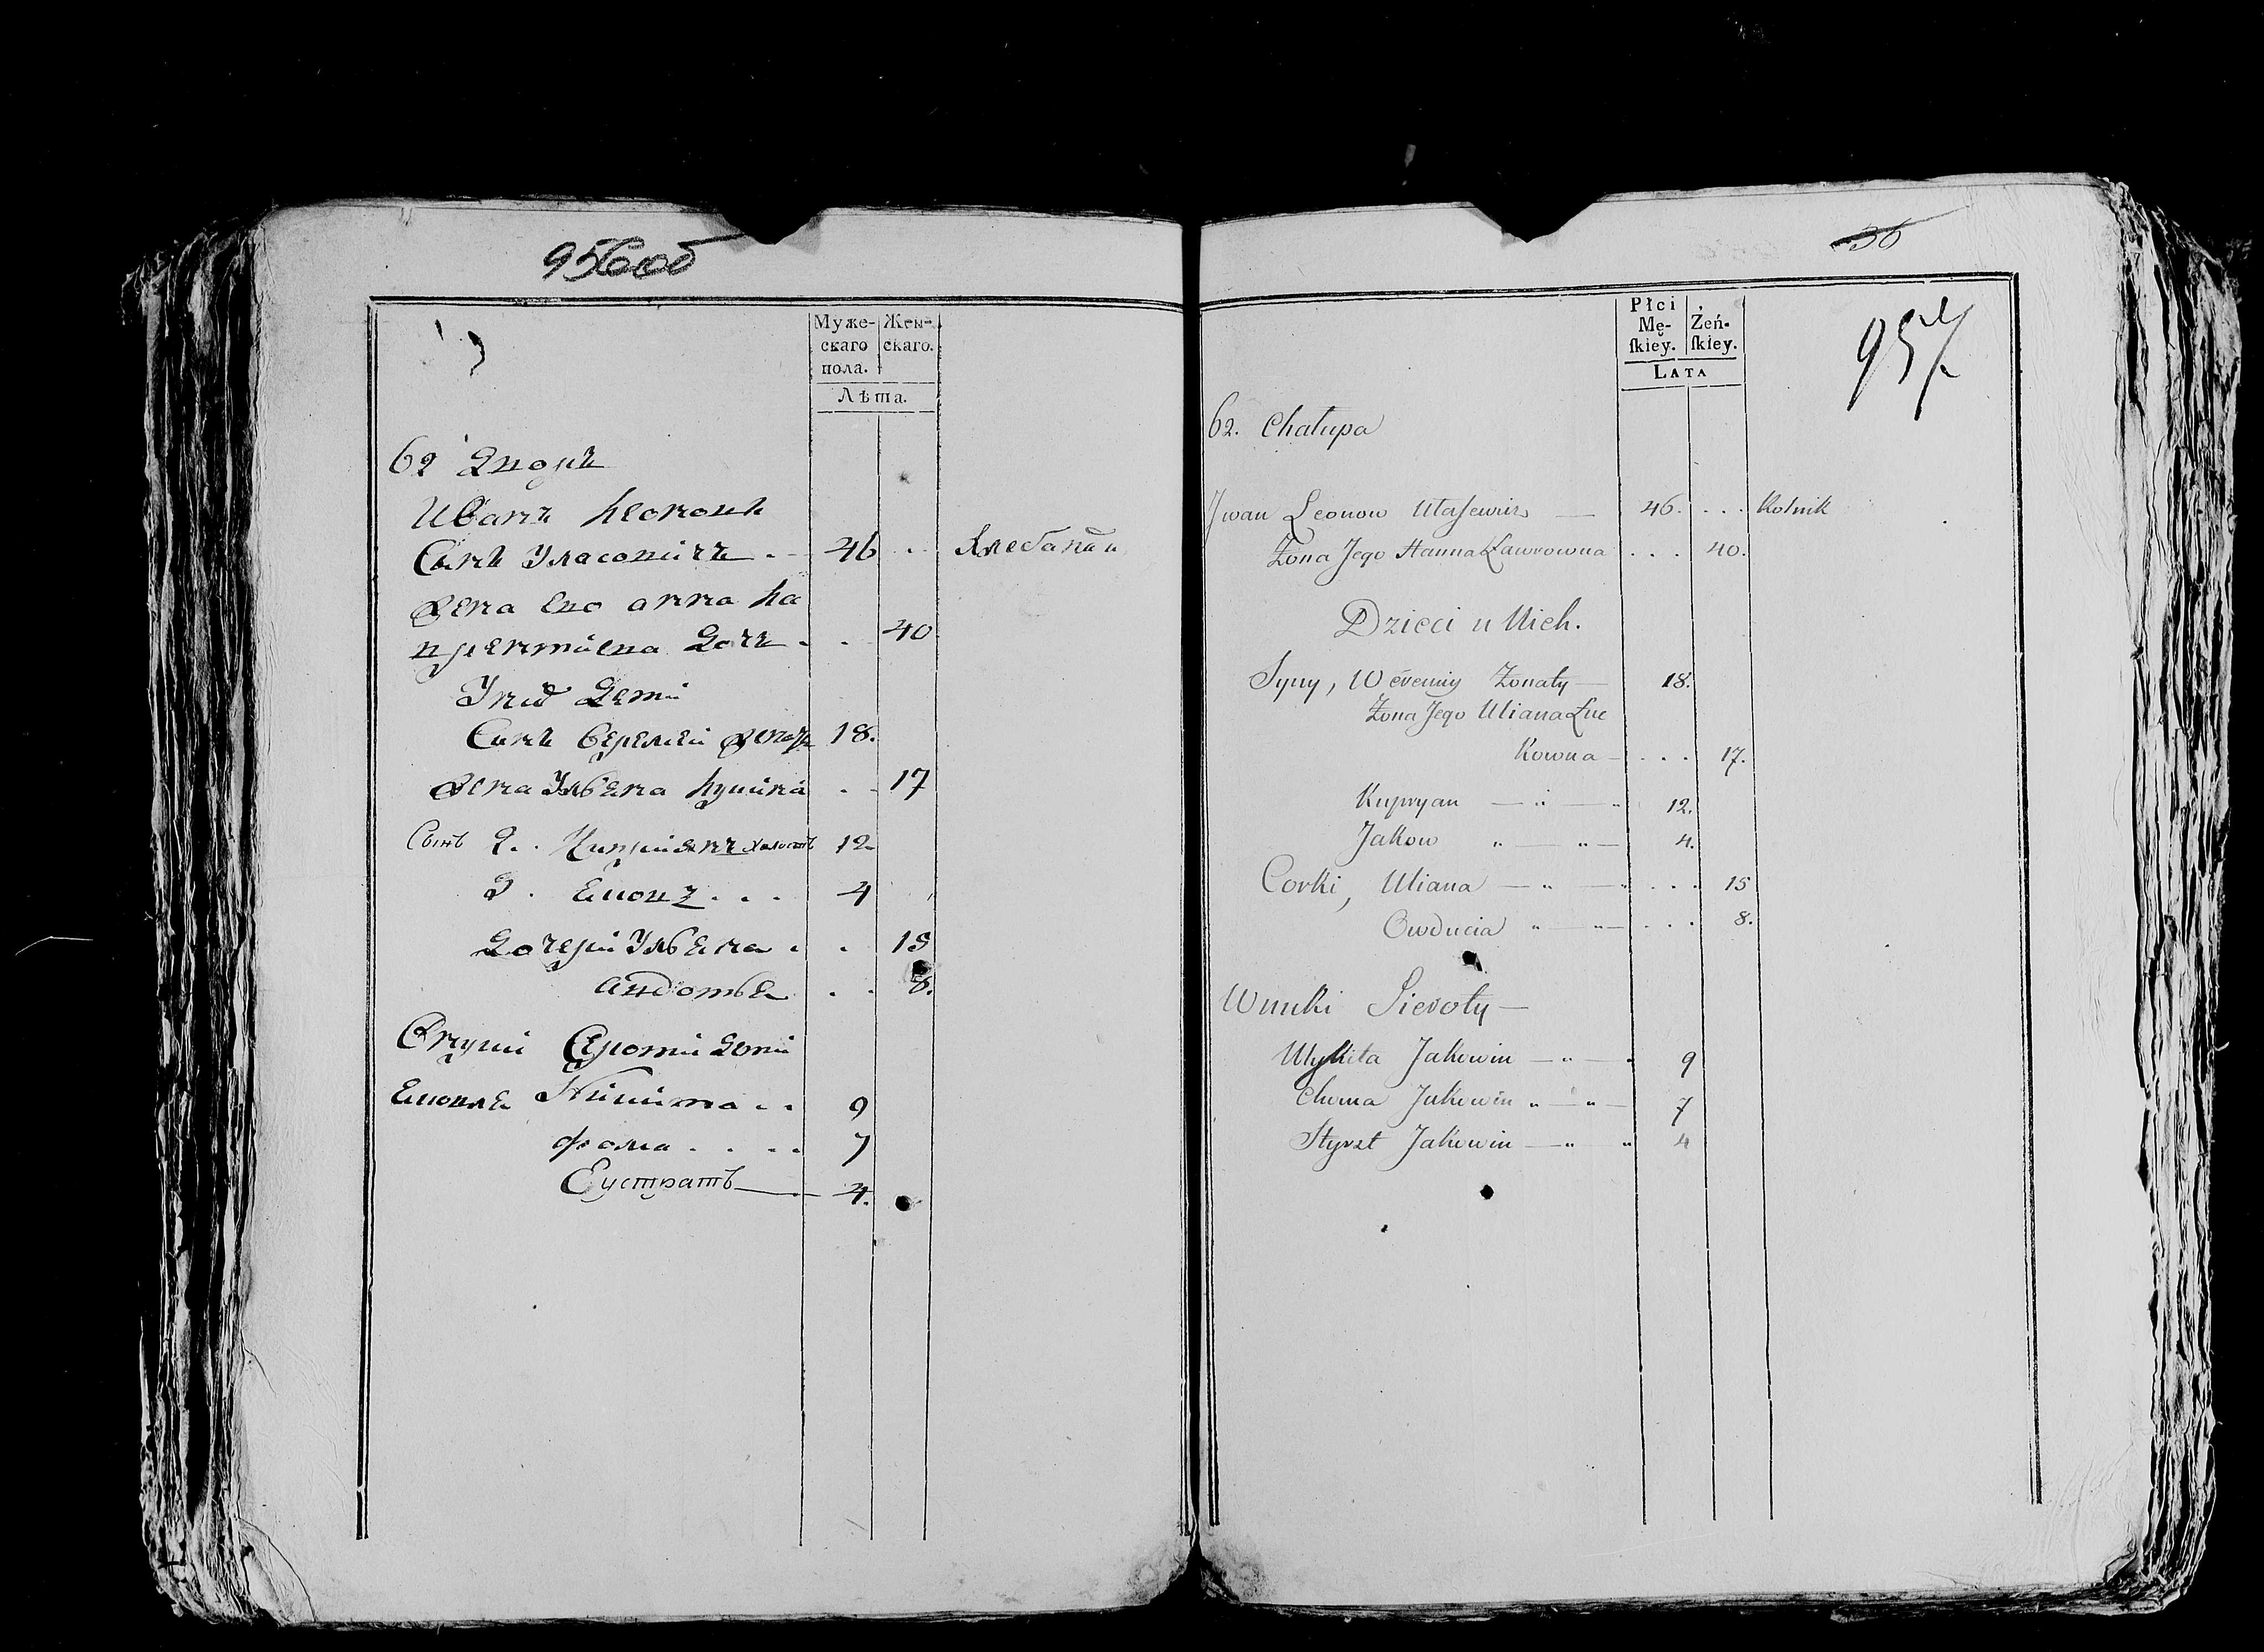 956 об
Муже-
скаго
пола.
Жен-
скаго.
Лѣта.
62 Дворъ
Иванъ Леоновъ
Сынъ Уласовичъ . - 46 . . Хлебапаш
Жена ево анна ла
врентиева Дочь . . 40
Унио Дети
Синъ Веремей женатъ 18.
Жена Ульяна луцкова . - 17
Сынъ 2. . Киприянъ холостъ 12
3 . Яковъ . . . 4
Дочери Ульяна . . 15
Авдотья . . 8.
Внуки Сироти Дети
Яковля Никита . . 9
фома . . . . 7
Еустратъ 4.
36
957
Płci
Mę-
ſkiey.
Żeń-
ſkiey.
LATA
62. Chałupa
Jwan Leonow Ułasewicz — 46. . . . Rolnik
Żona Jego Hanna Ławrowna . . . 40.
Dzieci u Nich.
Syny, Weremiy Żonaty — 18.
Żona Jego Uliana Łuc
kowna — . . . 17.
Kupryan — " — " 12.
Jakow " — " — 4.
Corki, Uliana — " — " . . . 15
Owducia " — " — . . . 8.
Wnuki Sieroty —
Mykita Jakowin — " — " 9
Choma Jakowin " — " — 7
Styrat Jakowin — " — " 4